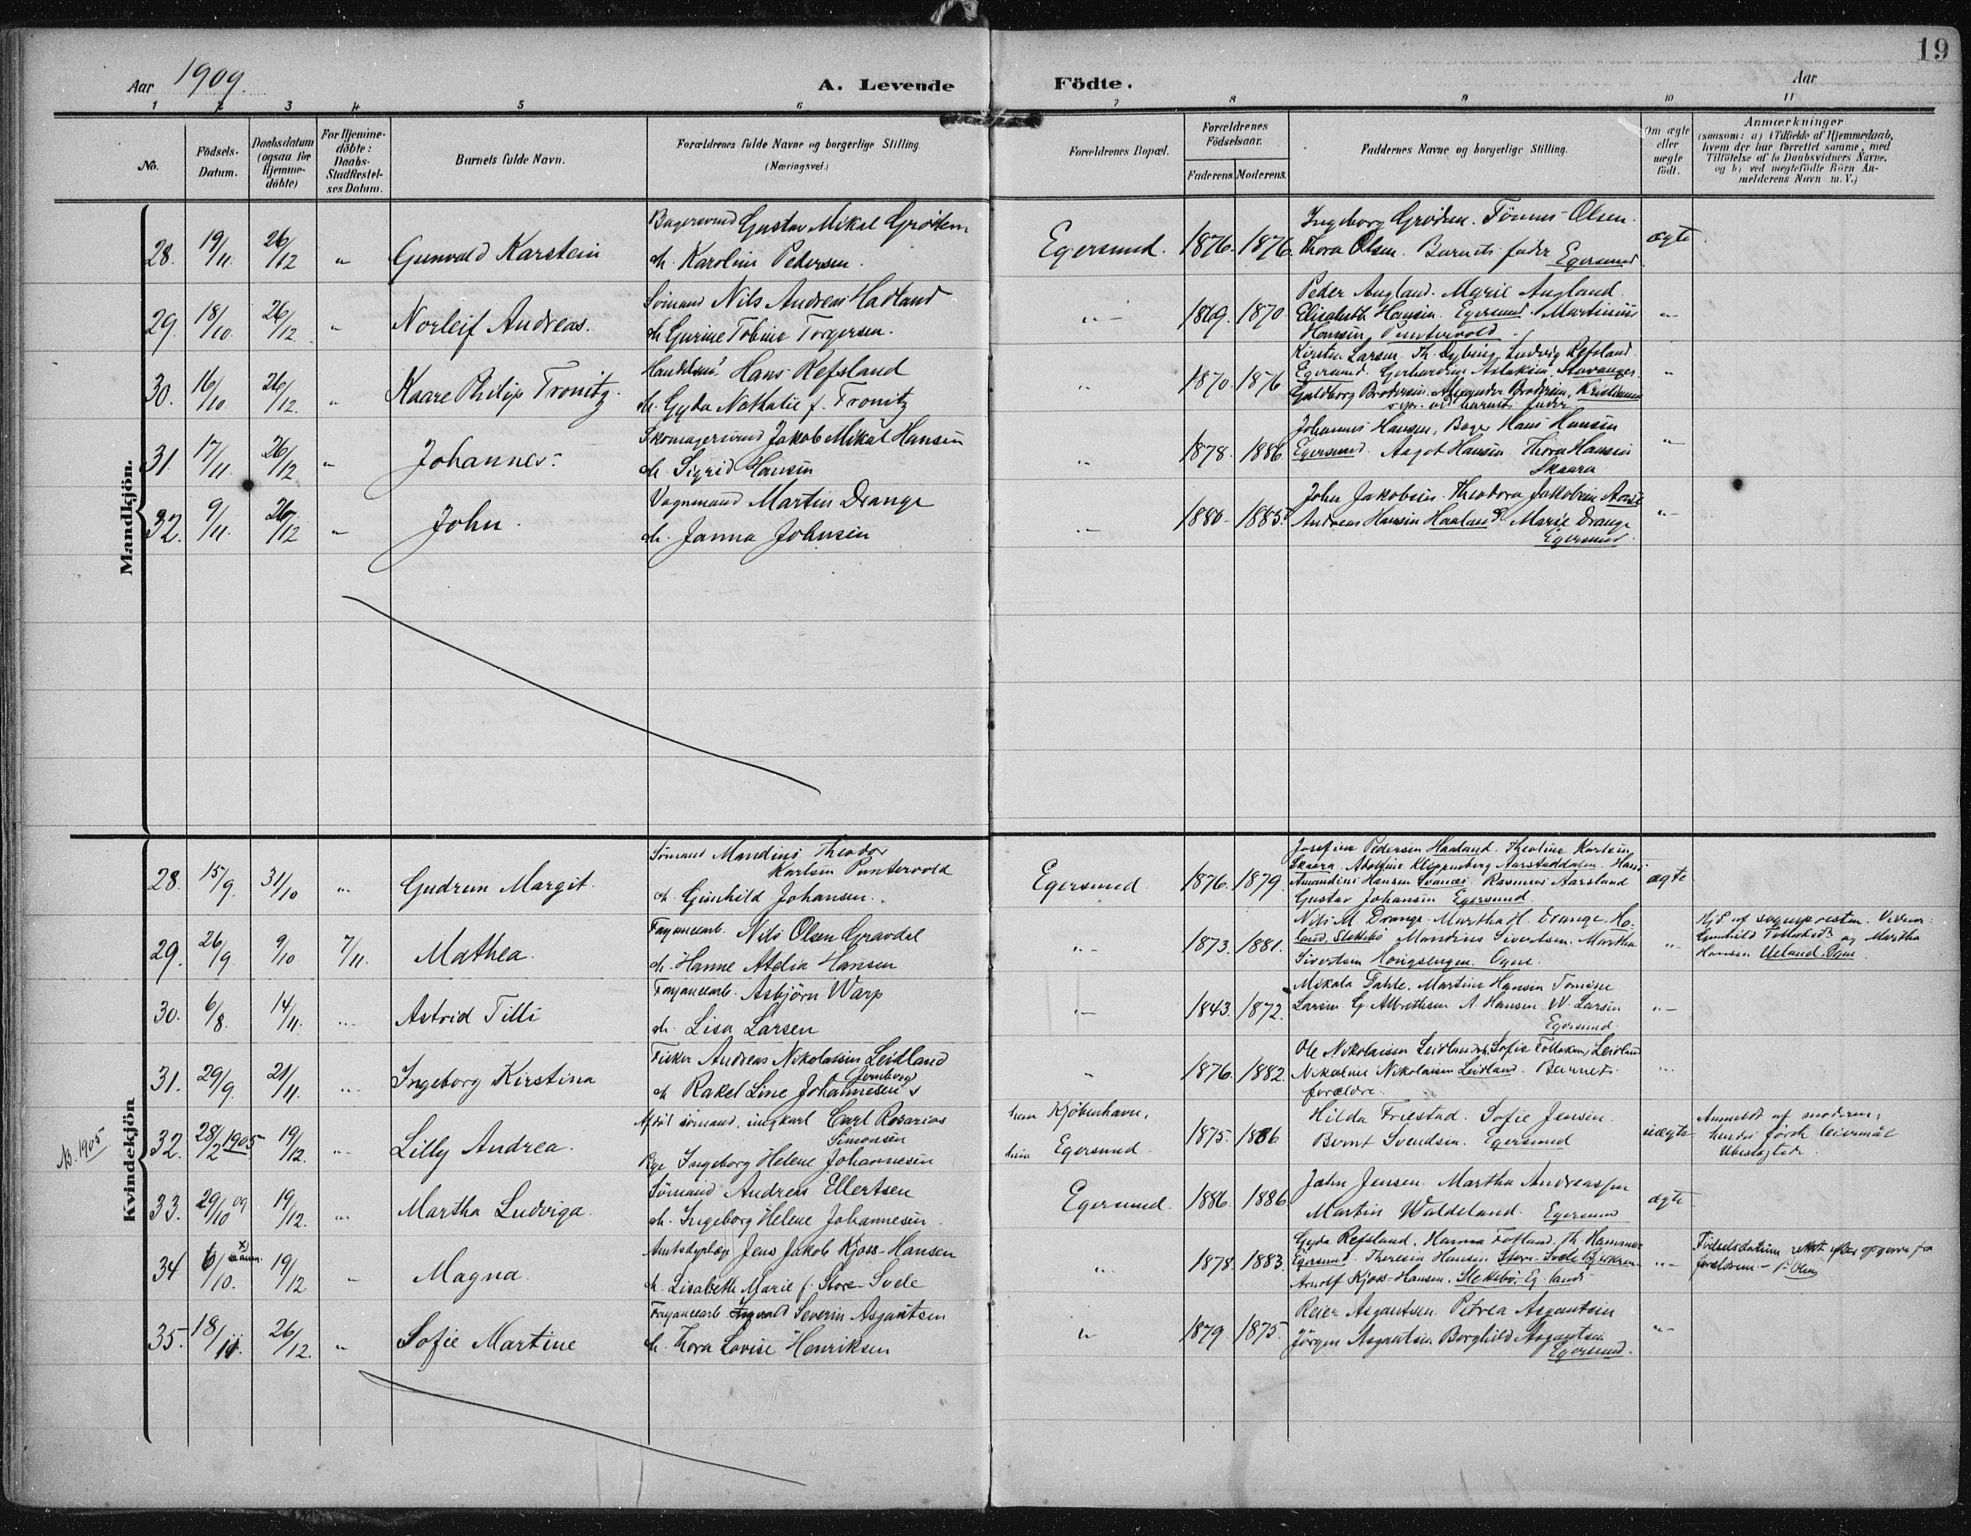 19
Aar 1909.
A. Levende Födte.
Aar
1 2 3 4 5 6 7 8 9 10 11
No.
Födsels-Datum.
Daabsdatum (ogsaa for Hjemme-döbte)
For Hjemme-döbte: Daabs-Stadfæstelses Datum.
Barnets fulde Navn.
Forældrenes fulde Navne og borgerlige Stilling (Næringsvei.)
Forældrenes Bopæl.
Forældrenes Födselsaar.
Faderens. Moderens.
Faddernes Navne og borgerlige Stilling.
Om ægte eller uægte födt.
Anmærkninger
(saasom: a) i Tilfælde af Hjemmedaab,
hvem der har forrettet samme, med
Tilföielse af to Daabsvidners Navne,
og b) ved uægtefödte Börn An-
melderens Navn m. V.)
Mandkjön.
28. 19/11. 26/12 " Gunvald Karstein
Bagersvend Gustav Mikal Grödem
h. Karoline Pedersen.
Egersund. 1876. 1876.
Ingeborg Grödem. Tönnes Olsen.
Thora Olsen. Barnets fader Egersund.
ægte
29. 18/10 26/12. " Norleif Andreas.
Sömand Nils Andreas Hadland
h. Gurine Tobine Torgersen.
" 1869. 1870
Peder Augland. Marie Augland.
Elisabeth Hansen. Egersund. Martinius
Hansen, Puntervold.
"
30. 16/10 26/12. " Kaare Philip Tronitz.
Hans Refsland
h. Gyda Nathalie f. Tronitz
" 1870. 1876
Kirsten Larsen. Th. Dybing. Ludvig Refsland.
Egersund. Aslaksen, Stavanger.
Brodersen. Alexander Brodersen, Kristiania
barnets fader
"
31. 17/11. 26/12 " Johannes.
Skomagersvend Jakob Mikal Hansen
h. Sigrid Hansen
" 1878. 1886
Johannes Hansen, Bager Hans Hansen
Egersund. Aagot Hansen. Thora Hansen
Skaara
"
32. 9/11. 26/12 " John.
Vognmand Martin Drange
h. Janna Johnsen
" 1880. 1885.
John Jakobsen. Theodora Jakobsen
Andreas Hansen Marie Drange
Egersund.
"
Kvindekjön
28. 15/9. 31/10 " Gudrun Margit.
Sömand Mandius Theodor
Karlsen Puntervold
h. Gunhild Johansen.
Egersund 1876. 1879.
Josefine Pedersen Haaland. Theoline Karlsen,
Skaara. Adolfine Klippenberg Aarstaddalen. Hans
Amandius Hansen Svanæs. Rasmus Aarsland
Gustav Johansen Egersund.
ægte
29. 26/9 9/10 7/11. Mathea.
Fayancearb. Nils Olsen Gravdal
h. Hanne Atelia Hansen
" 1873. 1881.
Nils M. Drange. Martha H. Drange. Ho-
land, Slettebö Mandius Sivertsen. Martha
Sivertsen Kongsengen. Ogne.
"
Hjd. af sognepresten.
Gunhild og Martha
Hansen Ueland, Ogne.
30. 6/8. 14/11. " Astrid Tilli
Fayancearb. Asbjörn Warp
h. Lisa Larsen
" 1843. 1872.
Mikala Dahle. Martine Hansen Tomine
Larsen G. Albrethsen A. Hansen. W. Larsen
Egersund
"
31. 29/9. 21/11. " Ingeborg Kirstina
Fisker Andreas Nikolaisen Leidland
h. Rakel Line Johannesen
" 1876. 1882.
Ole Nikolaisen Leidland. Sofie Leidland
Nikoline Nikolaisen Leidland. Barnets
forældre.
"
N.B. 1905
32. 28/2 1905 19/12. " Lilly Andrea.
sömand, ungkarl Carl Rosarias
Simonsen
Pge Ingeborg Helene Johannesen
han Kjöbenhavn,
hun Egersund. 1875. 1886
Hilda Friestad. Sofie Jensen.
Bernt Svendsen. Egersund
uægte
Anmeldt af moderen;
hendes förste leiermaal
33. 29/10 09 19/12. " Martha Ludviga.
Sömand Andreas Ellertsen
h. Ingeborg Helene Johannesen.
Egersund. 1886. 1886
John Jensen. Martha Andreassen
Martin Waldeland. Egersund
ægte
34 6/10. 19/12 " Magna.
Jens Jakob Kjoss-Hansen
h. Lisabeth Marie f. Store-Svele
" 1878. 1883.
Gyda Refsland. Hanna Fotland. Th. Hammer
Egersund. Theresia Hansen. Store-Svele Bjerkrem
Arnolf Kjoss-Hansen, Slettebö, Eg. lands
"
Födselsdatum rettet efter opgave fra
forældrene
35. 18/11. 26/12. " Sofie Martine
Fayancearb Ingvald Severin Asgautsen
h. Thora Lovise Henriksen
" 1879. 1875.
Reier Asgautsen. Petrea Asgautsen
Jörgen Asgautsen Borghild Asgautsen
Egersund.
"